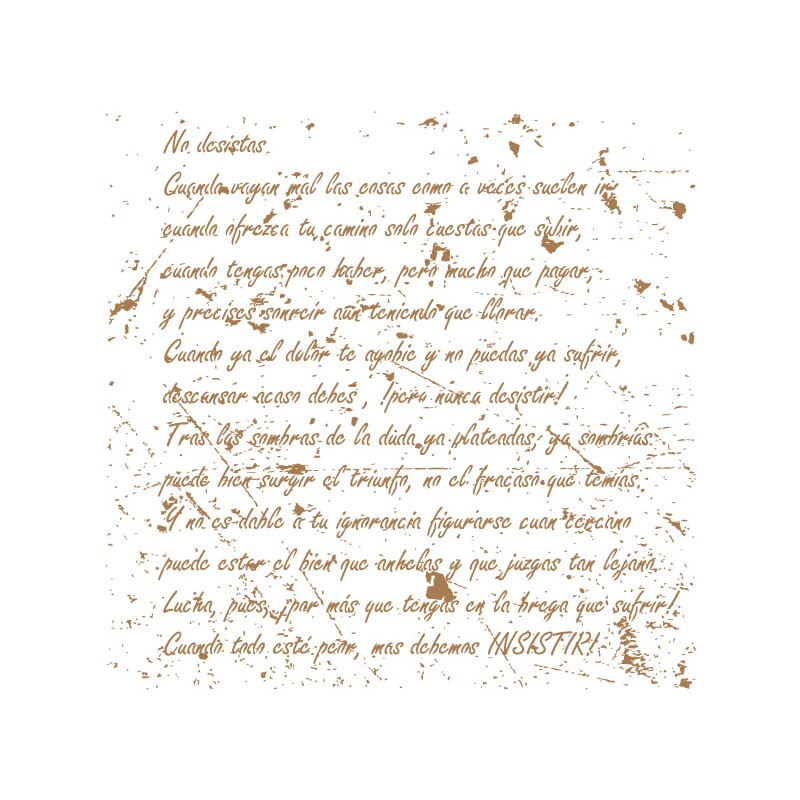 No desistas.
Cuando vayan mal las cosas como a veces suelen ir,
cuando ofrezca tu camino solo cuestas que subir,
cuando tengas poco haber, pero mucho que pagar,
y precises sonreir aún teniendo que llorar.
Cuando ya el dolor te agobie y no puedas ya sufrir,
descansar acaso debes , !pero nunca desistir!
Tras las sombras de la duda ya plateadas, ya sombrías
puede bien surgir el triunfo, no el fracaso que temías.
Y no es dable a tu ignorancia figurarse cuan cercano
puede estar el bien que anhelas y que juzgas tan lejano.
Lucha, pues, ¡por más que tengas en la brega que sufrir!.
Cuando todo esté peor, mas debemos INSISTIR!